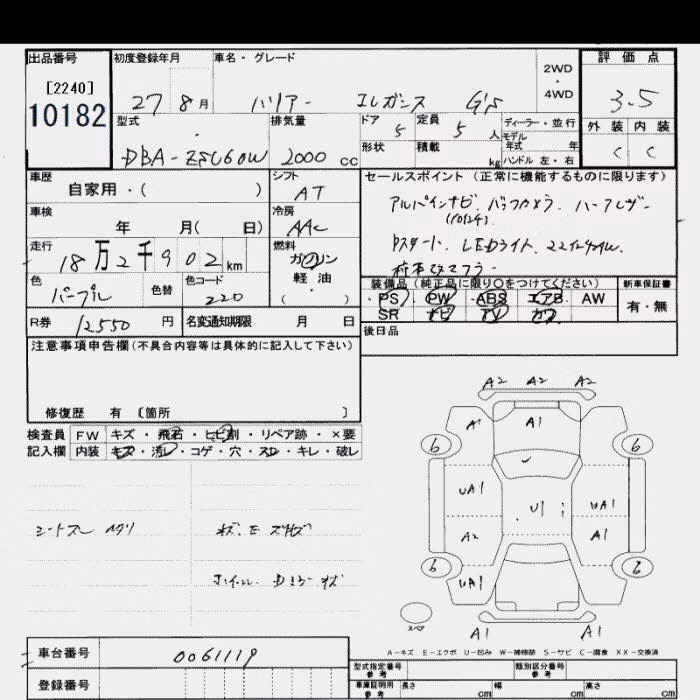 出品番号 初度登録年月 車名・グレード 2WD・4WD 評価点
[2240]
10182
27 8月 ハリアー エレガンス G's 3.5
型式 排気量 ドア 5 定員 5 人 ディーラー・並行 外装 内装
モデル年式 年
DBA-ZSU60W 2000cc 形状 積載 kg ハンドル 左・右 C C
車歴 シフト セールスポイント(正常に機能するものに限ります)
自家用・( ) AT
アルパインナビ. バックカメラ. ハーフレザー
車検 冷房
年 月( 日) AAC
Pスタート. LEDライト. 22インチアルミ.
走行 18万2千902km 燃料 ガソリン
軽油
( )
色 パープル 色替 色コード 220
装備品(純正品に限り○をつけてください) 新車保証書
・PS・PW・ABS・エアB・AW 有・無
SR ナビ TV カワ
R券 12550 円 名変通知期限 月 日
後日品
注意事項申告欄(不具合内容等は具体的に記入して下さい)
修復歴 有 〔箇所 〕
検査員 FW キズ・飛石・ヒビ割・リペア跡・×要
記入欄 内装 キズ・汚レ・コゲ・穴・スレ・キレ・破レ
A2 A2 A2
A1 A1
6 6
UA1 U1 UA1
A2 A1
6 6
UA1
スペア
A1 A1
A-キズ E-エクボ U-凹み W-補修跡 S-サビ C-腐食 XX-交換済
車台番号 0061119
型式指定番号 参考 類別区分番号 参考
登録番号 車庫証明用 参考 長さ cm 幅 cm 高さ cm